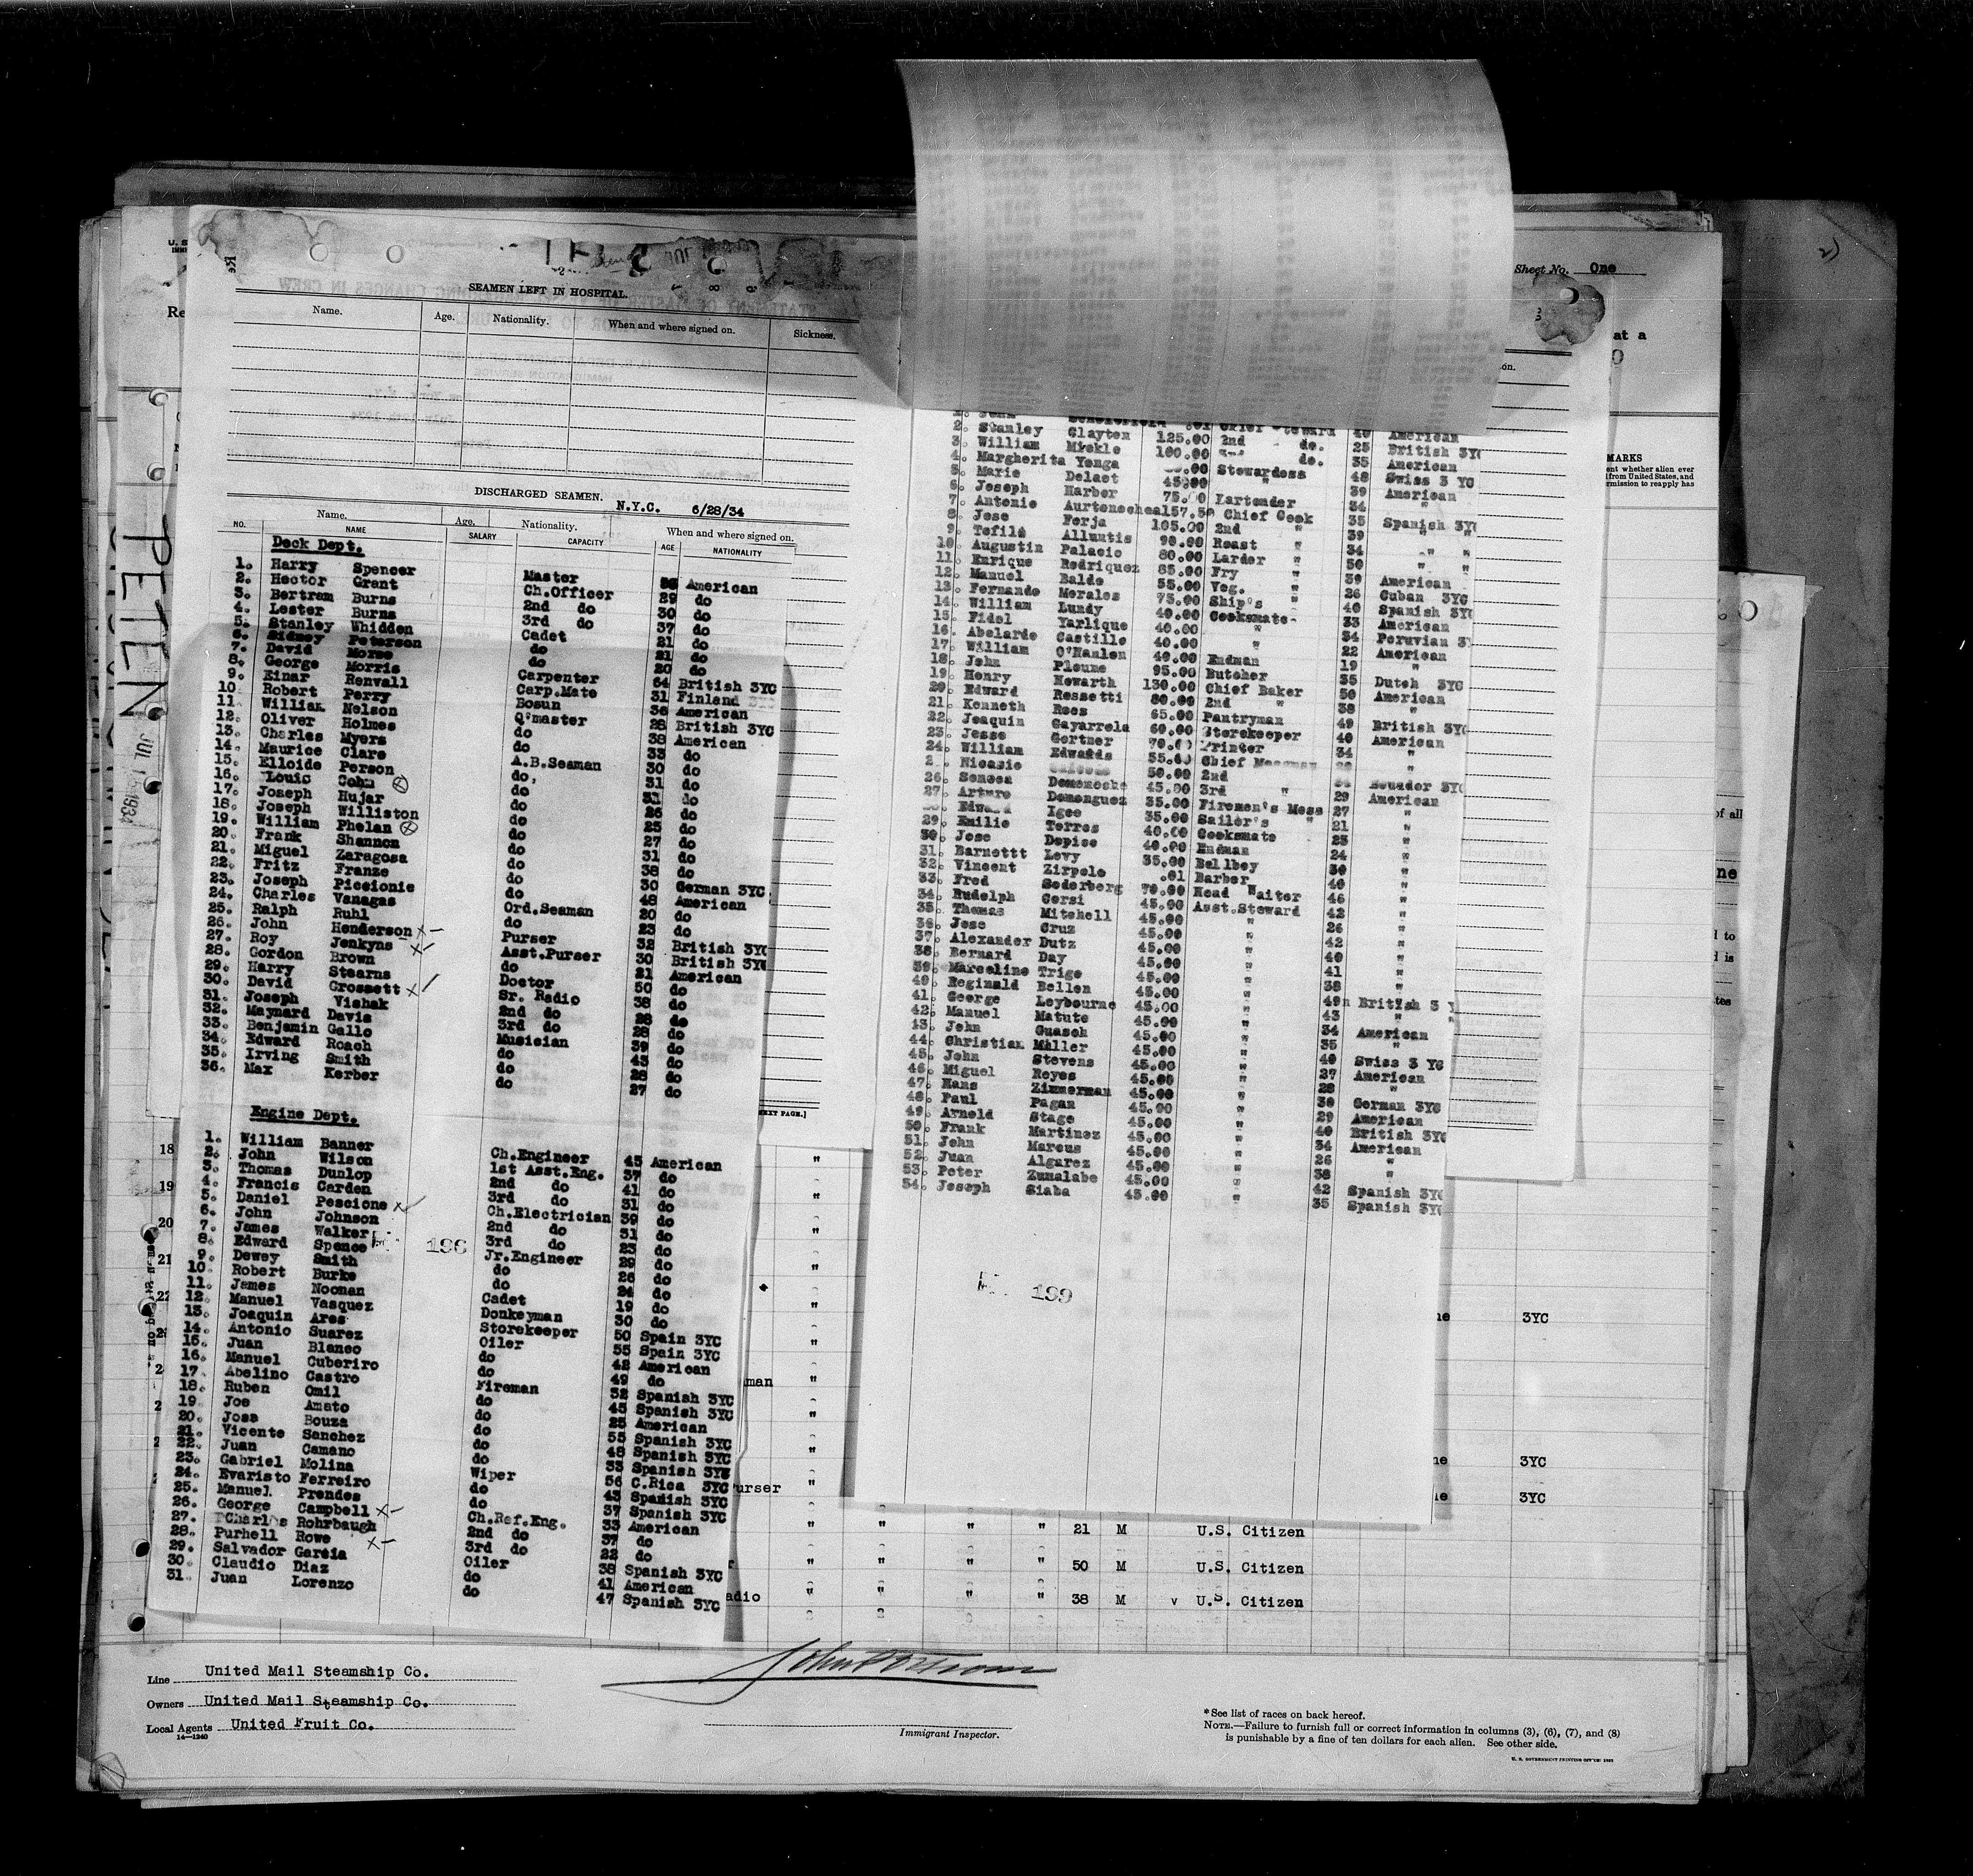 Sheet No. One
SEAMEN LEFT IN HOSPITAL.
Name. Age. Nationality. When and where signed on. Sickness.
DISCHARGED SEAMEN. N.Y.C. 6/28/34
Name. Age. Nationality. When and where signed on.
NO. NAME SALARY CAPACITY AGE NATIONALITY
Deck Dept.
1. Harry Spencer Master 36 American
2. Hector Grant Ch.Officer 29 do
3. Bertram Burns 2nd do 30 do
4. Lester Burns 3rd do 37 do
5. Stanley Whidden Cadet 21 do
6. Sidney Peterson do 21 do
7. David Morse do 20 do
8. George Morris Carpenter 64 British 3YC
9. Einar Renvall Carp.Mate 31 Finland 3YC
10. Robert Perry Bosun 36 American
11. William Nelson Q'master 28 British 3YC
12. Oliver Holmes do 38 American
13. Charles Myers do 33 do
14. Maurice Clare A.B.Seaman 30 do
15. Elloide Person do, 31 do
16. Louis Cohn do 31 do
17. Joseph Hujar do 26 do
18. Joseph Williston do 25 do
19. William Phelan do 27 do
20. Frank Shannon do 31 do
21. Miguel Zaragosa do 38 do
22. Fritz Franze do 30 German 3YC
23. Joseph Piccionie do 48 American
24. Charles Vanagas Ord.Seaman 20 do
25. Ralph Ruhl do 23 do
26. John Henderson x- Purser 32 British 3YC
27. Roy Jenkyns x- Asst.Purser 30 British 3YC
28. Gordon Brown do 21 American
29. Harry Stearns Doctor 50 do
30. David Grossett x Sr. Radio 38 do
31. Joseph Vishak 2nd do 28 do
32. Maynard Davis 3rd do 28 do
33. Benjamin Gallo Musician 39 do
34. Edward Roach do 43 do
35. Irving Smith do 28 do
36. Max Kerber do 27 do
Engine Dept.
1. William Banner Ch.Engineer 45 American
2. John Wilson 1st Asst.Eng. 37 do
3. Thomas Dunlop 2nd do 41 do
4. Francis Carden 3rd do 31 do
5. Daniel Pescione x Ch.Electrician 39 do
6. John Johnson 2nd do 31 do
7. James Walker 3rd do 23 do
8. Edward Spence Jr.Engineer 29 do
196
9. Dewey Smith do 26 do
10. Robert Burke do 24 do
11. James Noonan Cadet 19 do
12. Manuel Vasquez Donkeyman 30 do
13. Joaquin Ares Storekeeper 50 Spain 3YC
14. Antonio Suarez Oiler 55 Spain 3YC
15. Juan Blanco do 42 American
16. Manuel Cuberiro do 49 do
17. Abelino Castro Fireman 32 Spanish 3YC
18. Ruben Omil do 45 Spanish 3YC
19. Joe Amato do 25 American
20. Jose Bouza do 55 Spanish 3YC
21. Vicente Sanchez do 48 Spanish 3YC
22. Juan Camano do 33 Spanish 3YC
23. Gabriel Molina Wiper 56 C.Rica 3YC
24. Evaristo Ferreiro do 43 Spanish 3YC
25. Manuel Prendes do 37 Spanish 3YC
26. George Campbell x- Ch.Ref.Eng. 33 American
27. Charles Rohrbaugh 2nd do 37 do
28. Purhell Rowe x- 3rd do 22 do
29. Salvador Garcia Oiler 38 Spanish 3YC
30. Claudio Diaz do 41 American
31. Juan Lorenzo do 47 Spanish 3YC
2. Stanley Clayton 125.00 2nd do. 25 British 3YC
3. William Mickle 100.00 do. 35 American
4. Margherita Yonga Stewardess 48 Swiss 3 YC
5. Marie Delaet 45.00 " 39 American
6. Joseph Harber 75.00 Bartender 34 "
7. Antonio 157.50 Chief Cook 35 Spanish 3YC
8. Jose Borja 105.00 2nd " 39 " "
9. Tefile Alluntis 90.00 Roast " 34 " "
10. Augustin Palacio 80.00 Larder " 50 " "
11. Enrique Rodriquez 85.00 Fry " 39 American
12. Manuel Balde 55.00 Veg. " 26 Cuban 3YC
13. Fernando Morales 75.00 Ship's " 40 Spanish 3YC
14. William Lundy 40.00 Cooksmate 33 American
15. Fidel Yarlique 40.00 " 34 Peruvian
16. Abelardo Castillo 40.00 " 22 American
17. William O'Hanlon 40.00 Endman 19 "
18. John Ploume 95.00 Butcher 35 Dutch 3YC
19. Henry Howarth 130.00 Chief Baker 50 American
20. Edward Rossetti 80.00 2nd " 38 "
21. Kenneth Rees 65.00 Pantryman 49 British 3YC
22. Joaquin Gayarrola 60.00 Storekeeper 40 American
23. Jesse Gortner 70.00 Printer 34 "
24. William Edwards 55.00 Chief Messman "
Nicasio 50.00 2nd Ecuador 3YC
26. Seneca 45.00 3rd " 29 American
27. Arturo Domenguez 35.00 Firemen's Mess 27 "
Edward Igoe 35.00 Sailor's " 21 "
29. Emilio Torres 40.00 Cooksmate 25 "
30. Jose Dopico 40.00 Endman 24 "
31. Barnettt Levy 35.00 Bellboy 30 "
32. Vincent Zirpolo .01 Barber 40 "
33. Fred Soderberg 70.00 Head Waiter 46 "
34. Rudolph Corsi 45.00 Asst.Steward 42 "
35. Thomas Mitchell 45.00 " 26 "
36. Jose Cruz 45.00 " 42 "
37. Alexander Dutz 45.00 " 40 "
38. Bernard Day 45.00 " 41 "
39. Marceline Trigo 45.00 " 38 "
40. Reginald Bollen 45.00 " 49 British 3 Y
41. George Leybourne 45.00 " 43 " "
42. Manuel Matute 45.00 " 34 American
43. John Guasch 45.00 " 35 "
44. Christian Miller 45.00 " 40 Swiss 3 YC
45. John Stevens 45.00 " 27 American
46. Miguel Reyes 45.00 " 28 "
47. Hans Zimmerman 45.00 " 30 German 3YC
48. Paul Pagan 45.00 " 29 American
49. Arnold Stage 45.00 " 40 British 3YC
50. Frank Martinez 45.00 " 34 American
51. John Marcus 45.00 " 26 "
52. Juan Algarez 45.00 " 38 "
53. Peter Zumalabe 45.00 " 42 Spanish 3YC
54. Joseph Siaba 45.00 " 35 Spanish 3YC
199
PETEN
JUL 1934
MARKS
ent whether alien ever
from United States, and
rmission to reapply has
NEXT PAGE.]
18
19
20
21
3YC
3YC
urser
3YC
" " " " 21 M U.S. Citizen
" " " " 50 M U.S. Citizen
adio " " " " 38 M v U.S. Citizen
Line United Mail Steamship Co.
Owners United Mail Steamship Co.
Local Agents United Fruit Co.
14—1240
Immigrant Inspector.
* See list of races on back hereof.
NOTE.—Failure to furnish full or correct information in columns (3), (6), (7), and (8)
is punishable by a fine of ten dollars for each alien. See other side.